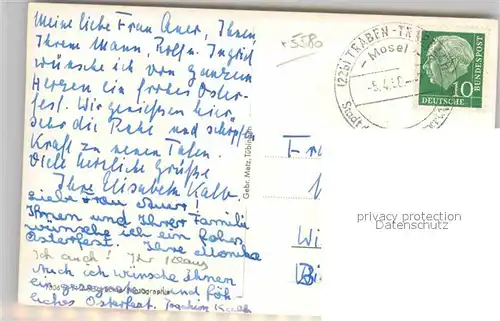 Meine liebe Frau Auer, Ihnen
Ihrem Mann, Rolf u. Ingrid
wünsche ich von ganzem
Herzen ein frohes Oster-
fest. Wir geniessen hier
sehr die Ruhe und schöpfen
Kraft zu neuen Taten.
Viele herzliche Grüße
Ihre Elisabeth Kalb.
Liebe Frau Auer!
Ihnen und Ihrer Familie
wünsche ich ein frohes
Osterfest. Ihre Monika
Ich auch! Ihr Klaus
Auch ich wünsche Ihnen
ein gesegnetes und fröh-
liches Osterfest. Joachim Kalb
Gebr. Metz, Tübingen
5580
(22b) TRABEN-TR
Mosel
-5.4.58.
10
DEUTSCHE
BUNDESPOST
Fr
Wi
privacy protection
Datenschutz